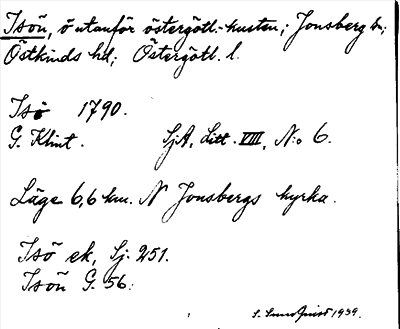 Isön, ö utanför östergötl.-kusten; Jonsberg sn;
Östkinds hd; Östergötl. l.
Isö 1790.
G. Klint. SjA, Litt. VIII, N:o 6.
Läge 6,6 km. N Jonsbergs kyrka.
Isö ek, Sj. 251.
Isön G. 56.
S. Sundqvist 1939.